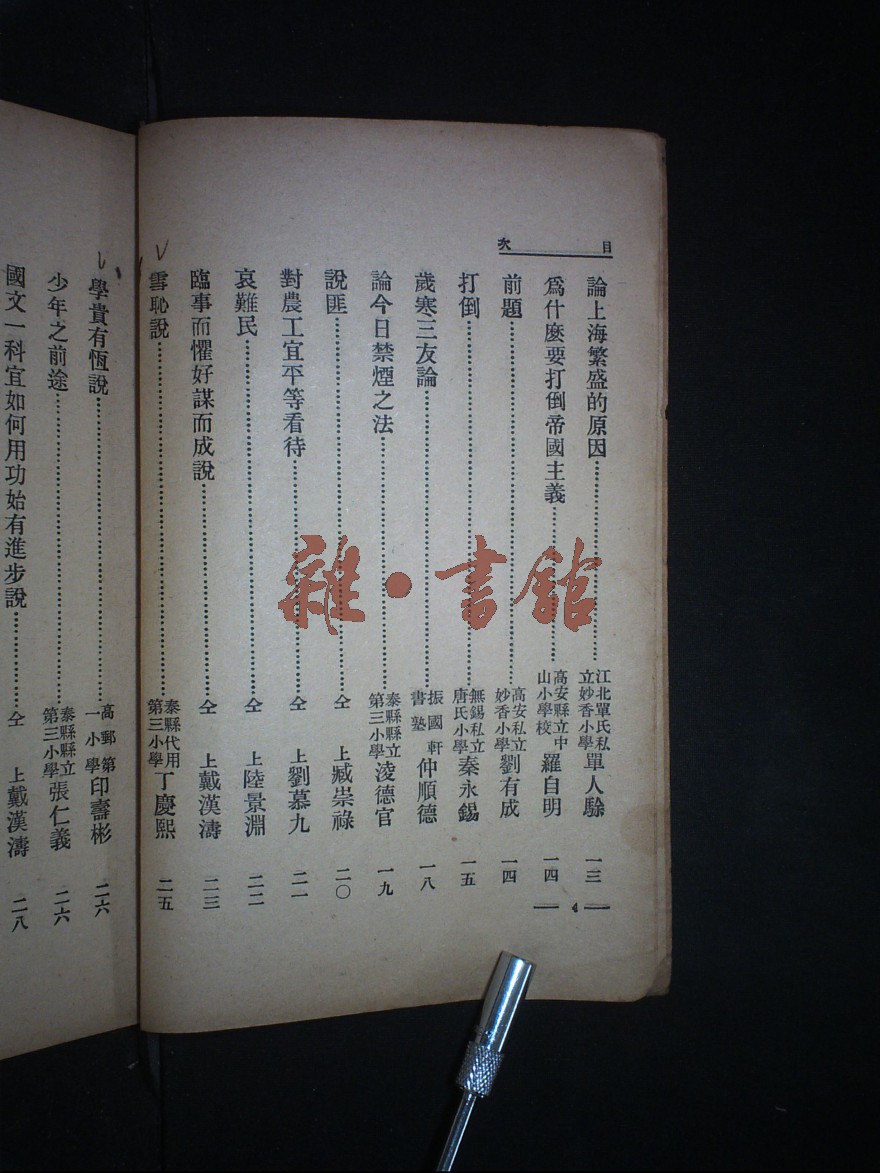 目次
論上海繁盛的原因……江北單氏私立妙香小學單人驗 一三
爲什麼要打倒帝國主義……高安縣立中山小學校羅自明 一四
前題……高安私立妙香小學劉有成 一四
打倒……無錫私立唐氏小學秦永錫 一五
歲寒三友論……振國軒書塾仲順德 一八
論今日禁煙之法……泰縣縣立第三小學淩德官 一九
說匪……仝上臧崇祿 二〇
對農工宜平等看待……仝上劉慕九 二一
哀難民……仝上陸景淵 二二
臨事而懼好謀而成說……仝上戴漢濤 二三
雪恥說……泰縣代用第三小學丁慶熙 二五
4
學貴有恆說……高郵第一小學印壽彬 二六
少年之前途……泰縣縣立第三小學張仁義 二六
國文一科宜如何用功始有進步說……仝上戴漢濤 二八
雜·書館